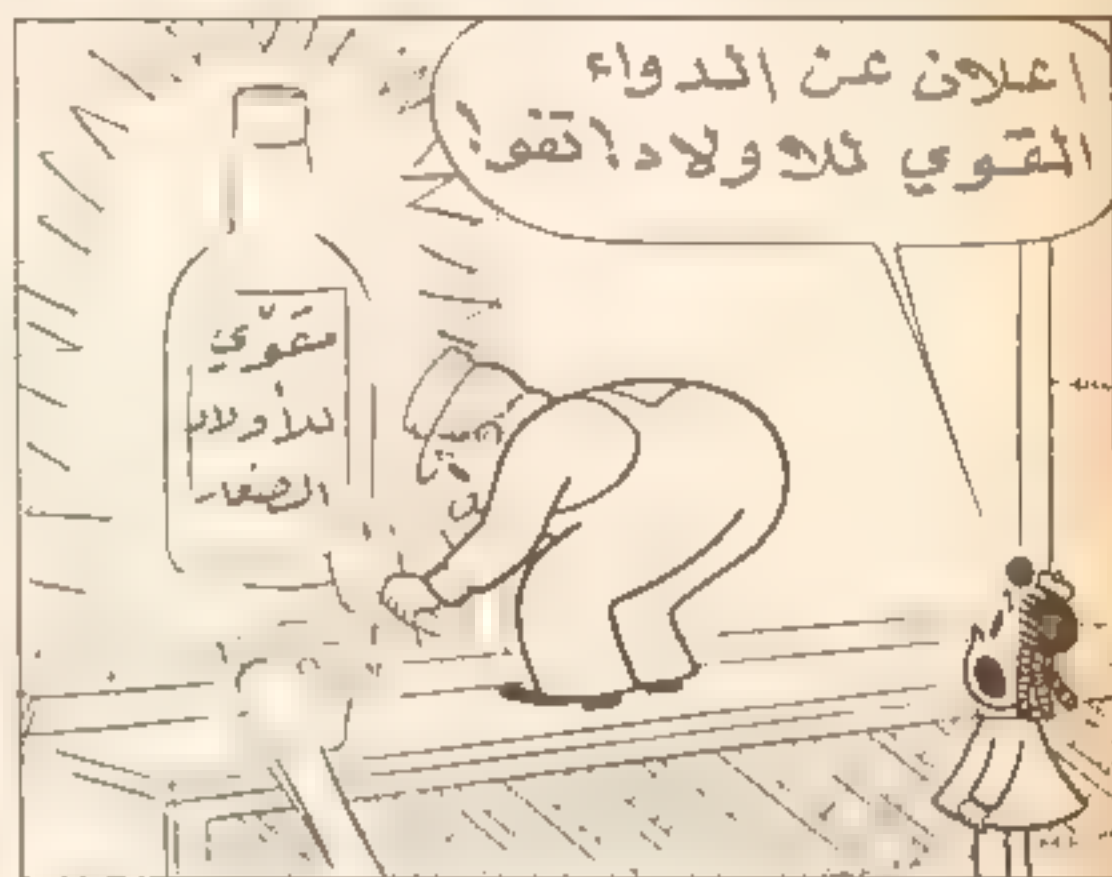 اعلان عن الدواء
المقوي للاولاد! تفو!
مقوّي
للأولاد
الصغار